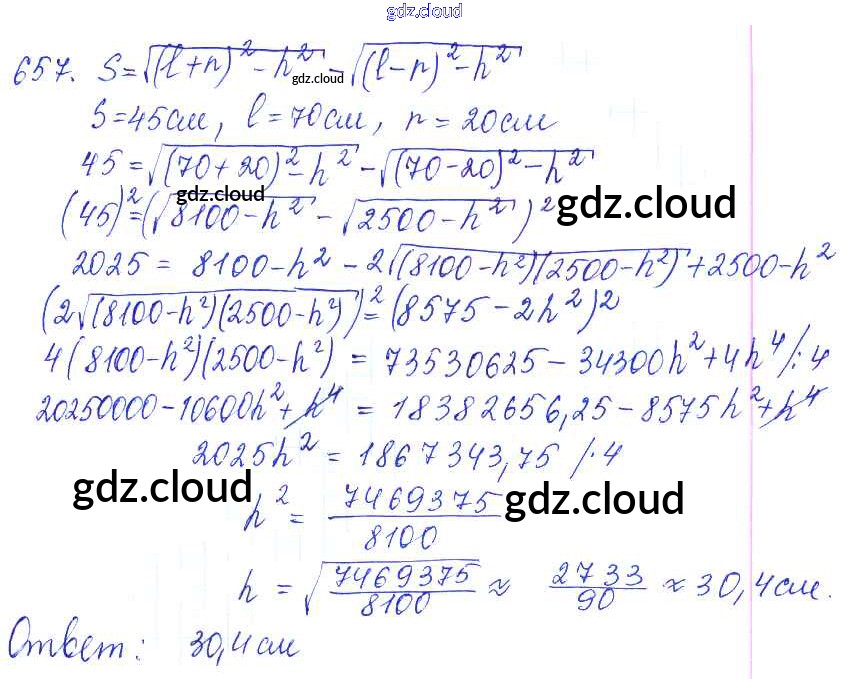 gdz.cloud
657. S=√((l+r)²-h²) - √((l-r)²-h²)
gdz.cloud
S=45см, l=70см, r=20см
45=√((70+20)²-h²)-√((70-20)²-h²)
gdz.cloud
(45)²=(√(8100-h²)-√(2500-h²))²
gdz.cloud
2025 = 8100-h²-2√((8100-h²)(2500-h²))+2500-h²
(2√((8100-h²)(2500-h²)))²=(8575-2h²)²
4(8100-h²)(2500-h²) = 73530625-34300h²+4h⁴/:4
20250000-10600h²+h⁴ = 18382656,25-8575h²+h⁴
2025h² = 1867343,75 /·4
gdz.cloud
h² = 7469375/8100
gdz.cloud
h = √(7469375/8100) ≈ 2733/90 ≈ 30,4см.
Ответ: 30,4см